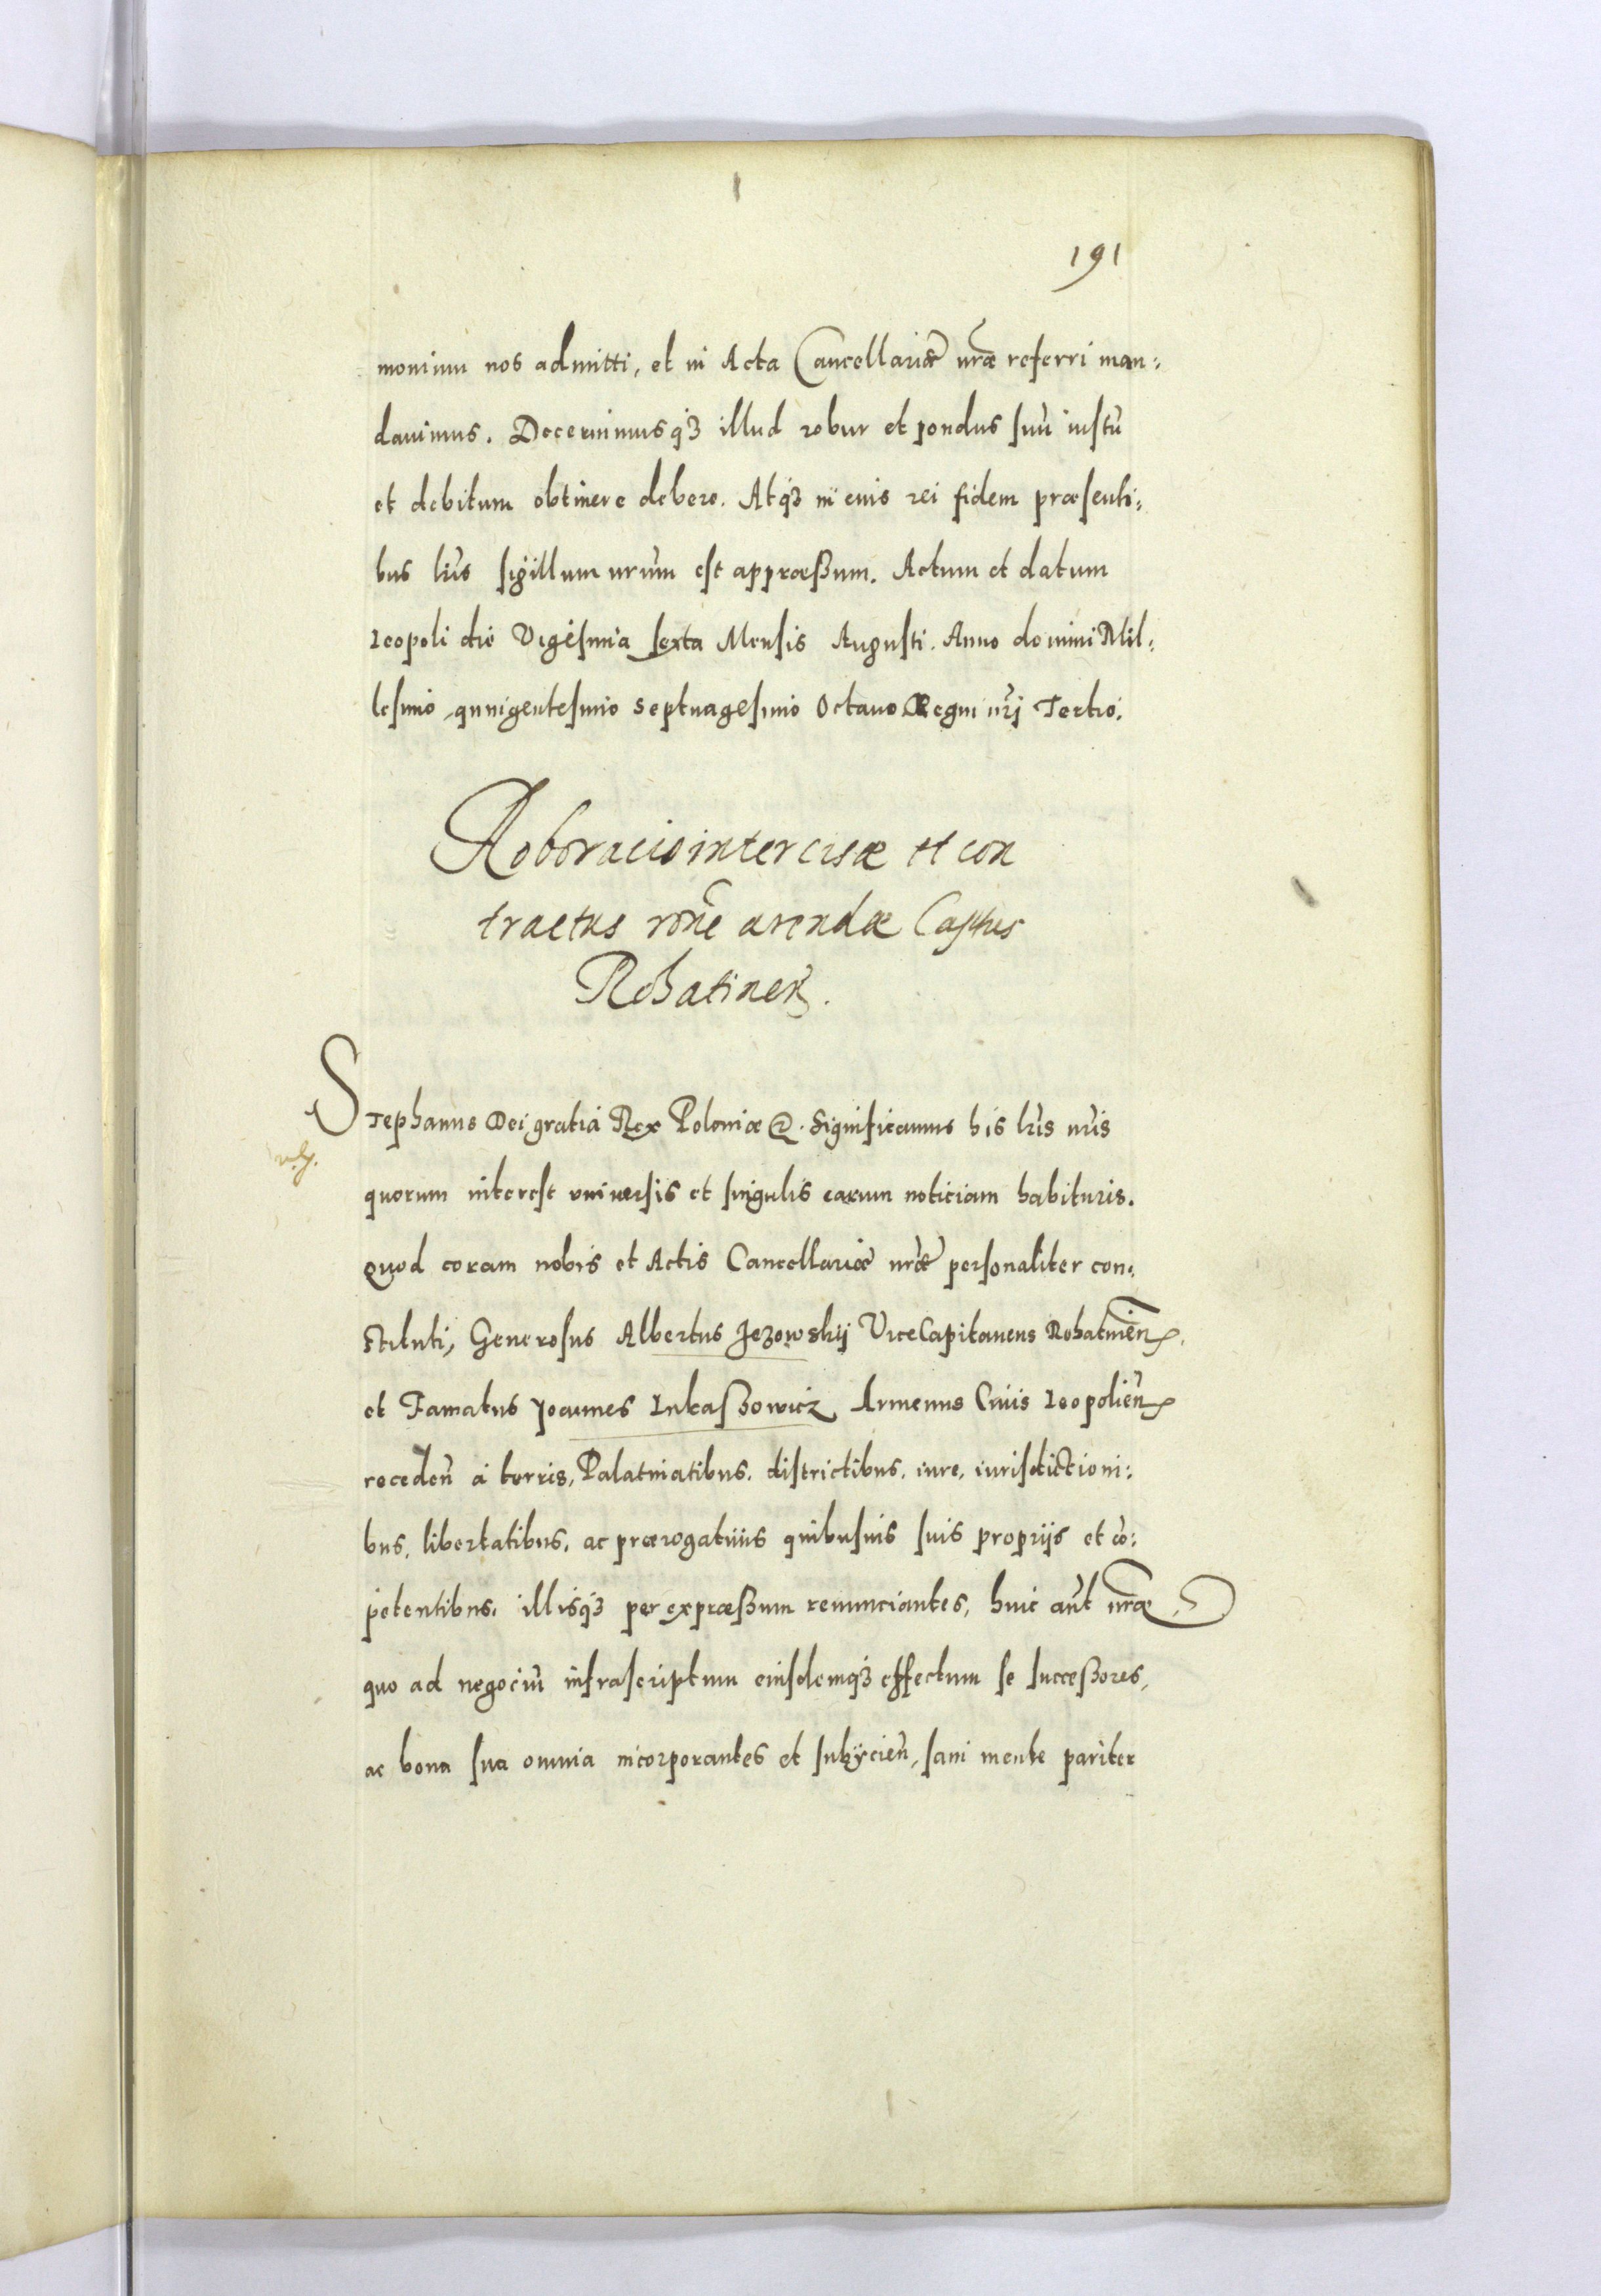 191
monium nos admitti, et in Acta Cancellariæ nr̃æ referri man:
dauimus. Decernimusq3 illud robur et pondus suũ iustũ
et debitum obtinere debere. Atq3 in cuius rei fidem præsenti:
bus lr̃is sigillum nrũm est appræssum. Actum et datum
Leopoli die Vigesima sexta Mensis Augusti. Anno domini Mil:
lesimo quingentesimo septuagesimo Octauo Regni nr̃j Tertio.
Roboracio intercisæ et con
tractus rõne arendæ Captus
Rohatineñ.
Stephanus Dei gratia Rex Poloniæ &. Significamus his lr̃is nr̃is
quorum interest vniuersis et singulis earum noticiam habituris.
Quod coram nobis et Actis Cancellariæ nr̃æ personaliter con:
stituti, Generosus Albertus Jezowskij ViceCapitaneus Rohatinеñ.
et Famatus Joannes Lukassowicz Armenus Ciuis Leopolieñ
recedeñ à terris, Palatinatibus, districtibus, iure, iurisdictioni:
bus, libertatibus, ac prærogatiuis quibusuis suis proprijs et cõ:
petentibus, illisq3 per expræssum renunciantes, huic aũt nr̃æ
quo ad negociũ infrascriptum eiusdemq3 effectum se successores,
ac bona sua omnia incorporantes et subijcieñ, sani mente pariter